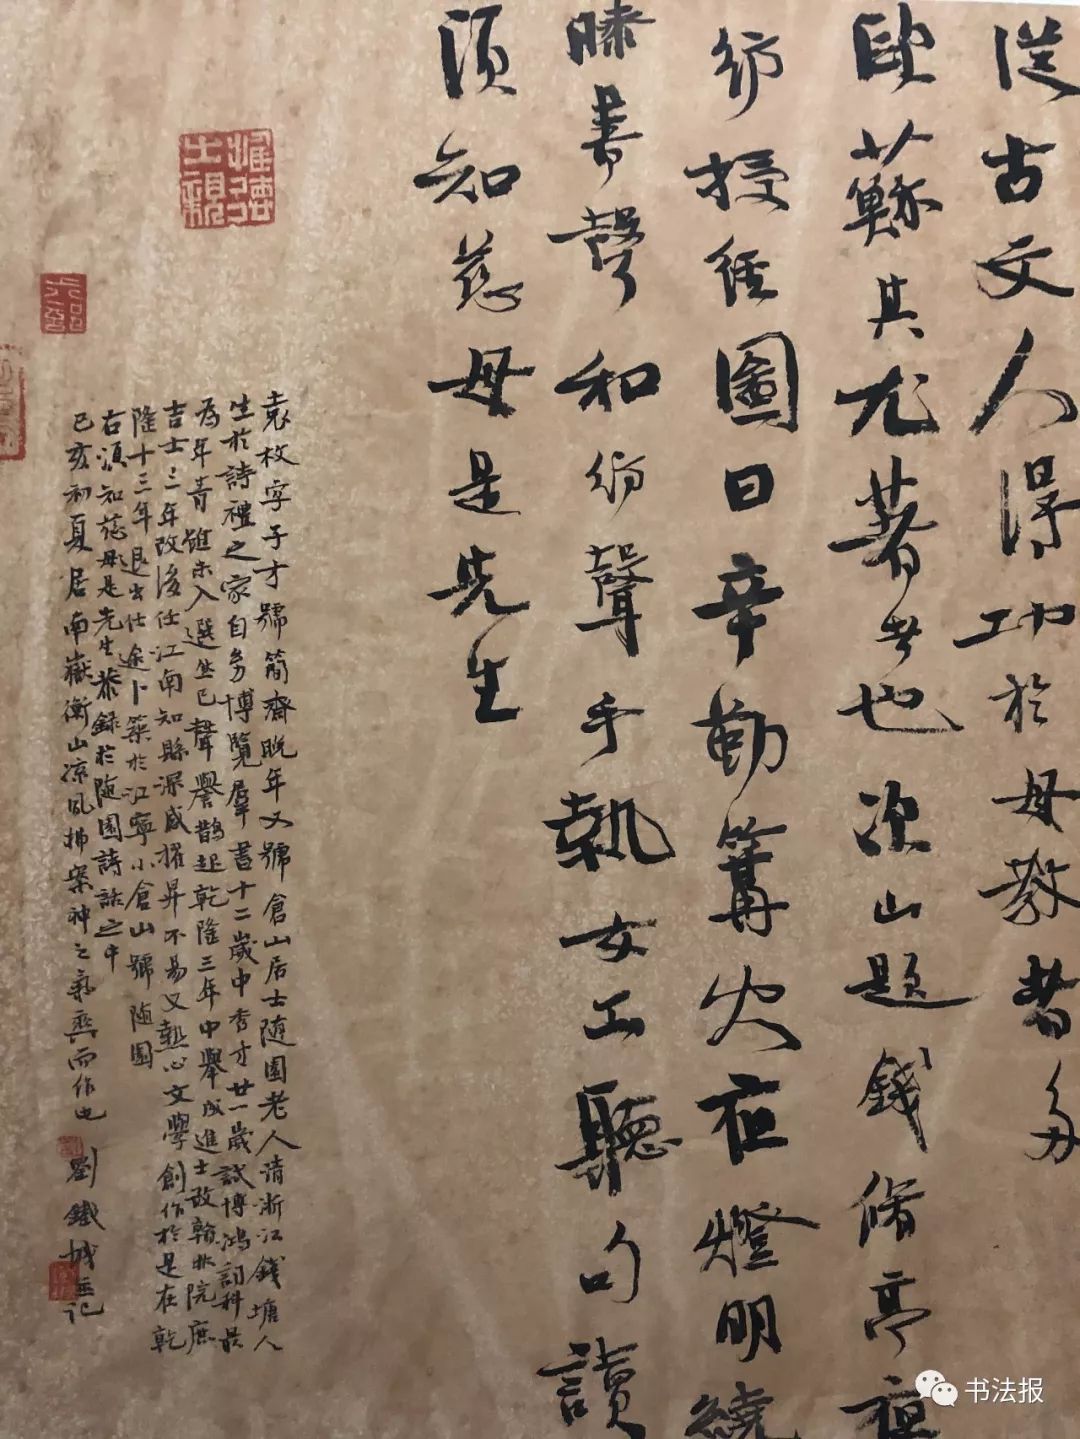 從古文人得功於母教者多
歐蘇其尤著者也次山題錢脩亭夜
紡授經圖曰辛勤篝火夜燈明繞
膝書聲和紡聲手執女工聽句讀
須知慈母是先生
袁枚字子才號簡齋晚年又號倉山居士随園老人清浙江錢塘人
生於詩禮之家自幼博覽羣書十二歲中秀才廿一歲試博鴻詞科最
為年青雖未入選然已聲譽鵲起乾隆三年中舉成進士改翰林院庶
吉士三年改後任江南知縣深感擢昇不易又熱心文學創作於是在乾
隆十三年退出仕途卜築於江寧小倉山號随園
右須知慈母是先生恭錄於随園詩話之中
己亥初夏居南嶽衡山涼風拂案神之氣爽而作也 劉鐵城並記
书法报